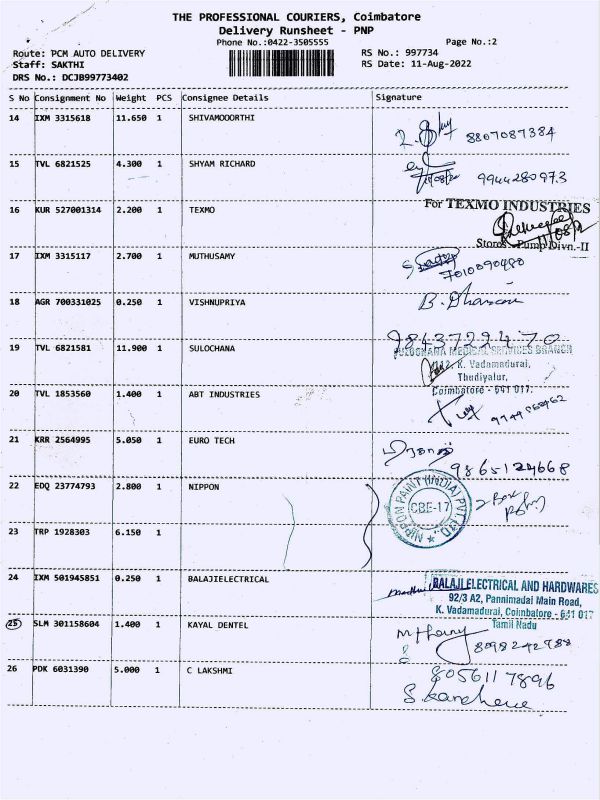 THE PROFESSIONAL COURIERS, Coimbatore
Delivery Runsheet - PNP
Phone No.:0422-3505555
Page No.:2
Route: PCM AUTO DELIVERY
RS No.: 997734
Staff: SAKTHI
RS Date: 11-Aug-2022
DRS No.: DCJB99773402
S No Consignment No Weight PCS Consignee Details Signature
14 IXM 3315618 11.650 1 SHIVAMOOORTHI
8807087384
15 TVL 6821525 4.300 1 SHYAM RICHARD
9944280973
16 KUR 527001314 2.200 1 TEXMO
For TEXMO INDUSTRIES
Stores Pump Divn.-II
17 IXM 3315117 2.700 1 MUTHUSAMY
7010090480
18 AGR 700331025 0.250 1 VISHNUPRIYA
9843722470
19 TVL 6821581 11.900 1 SULOCHANA
SULOCHANA MEDICAL SERVICES BRANCH
K. Vadamadurai,
Thudiyalur,
Coimbatore - 641 017.
20 TVL 1853560 1.400 1 ABT INDUSTRIES
21 KRR 2564995 5.050 1 EURO TECH
9865124668
22 EDQ 23774793 2.800 1 NIPPON
NIPPON PAINT (INDIA) PVT. LTD.
CBE-17
2 Box
23 TRP 1928303 6.150 1
24 IXM 501945851 0.250 1 BALAJIELECTRICAL
BALAJI ELECTRICAL AND HARDWARES
92/3 A2, Pannimadai Main Road,
K. Vadamadurai, Coimbatore - 641 017
Tamil Nadu
25 SLM 301158604 1.400 1 KAYAL DENTEL
8098242988
26 PDK 6031390 5.000 1 C LAKSHMI
8056117896